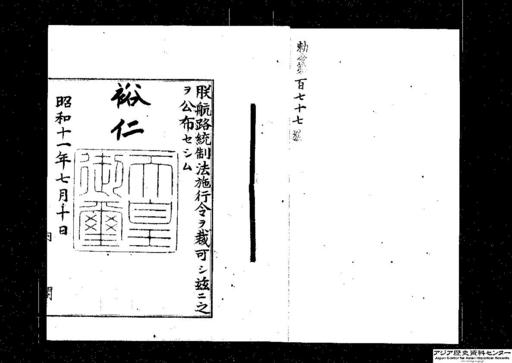 勅令第百七十七号
朕航路統制法施行令ヲ裁可シ茲ニ之
ヲ公布セシム
裕仁
天皇
御璽
昭和十一年七月十日
内閣
アジア歴史資料センター
Japan Center for Asian Historical Records